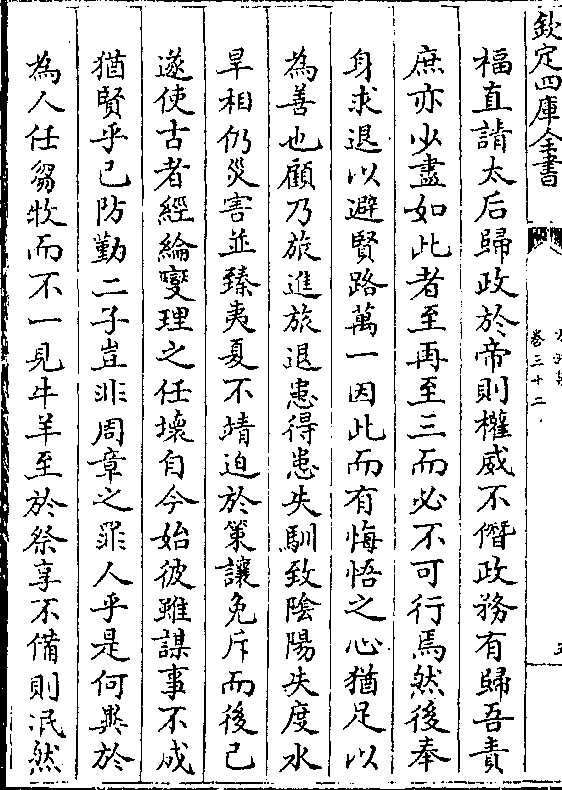 欽定四庫全書
卷三十二
福直請太后歸政於帝則權威不僭政務有歸吾責
庶亦少盡如此者至再至三而必不可行焉然後奉
身求退以避賢路萬一因此而有悔悟之心猶足以
為善也顧乃旅進旅退患得患失馴致陰陽失度水
旱相仍災害並臻夷夏不靖迫於策讓免斥而後已
遂使古者經綸燮理之任壞自今始彼雖謀事不成
猶賢乎已防勤二子豈非周章之罪人乎是何異於
為人任芻牧而不一見牛羊至於祭享不備則泯然